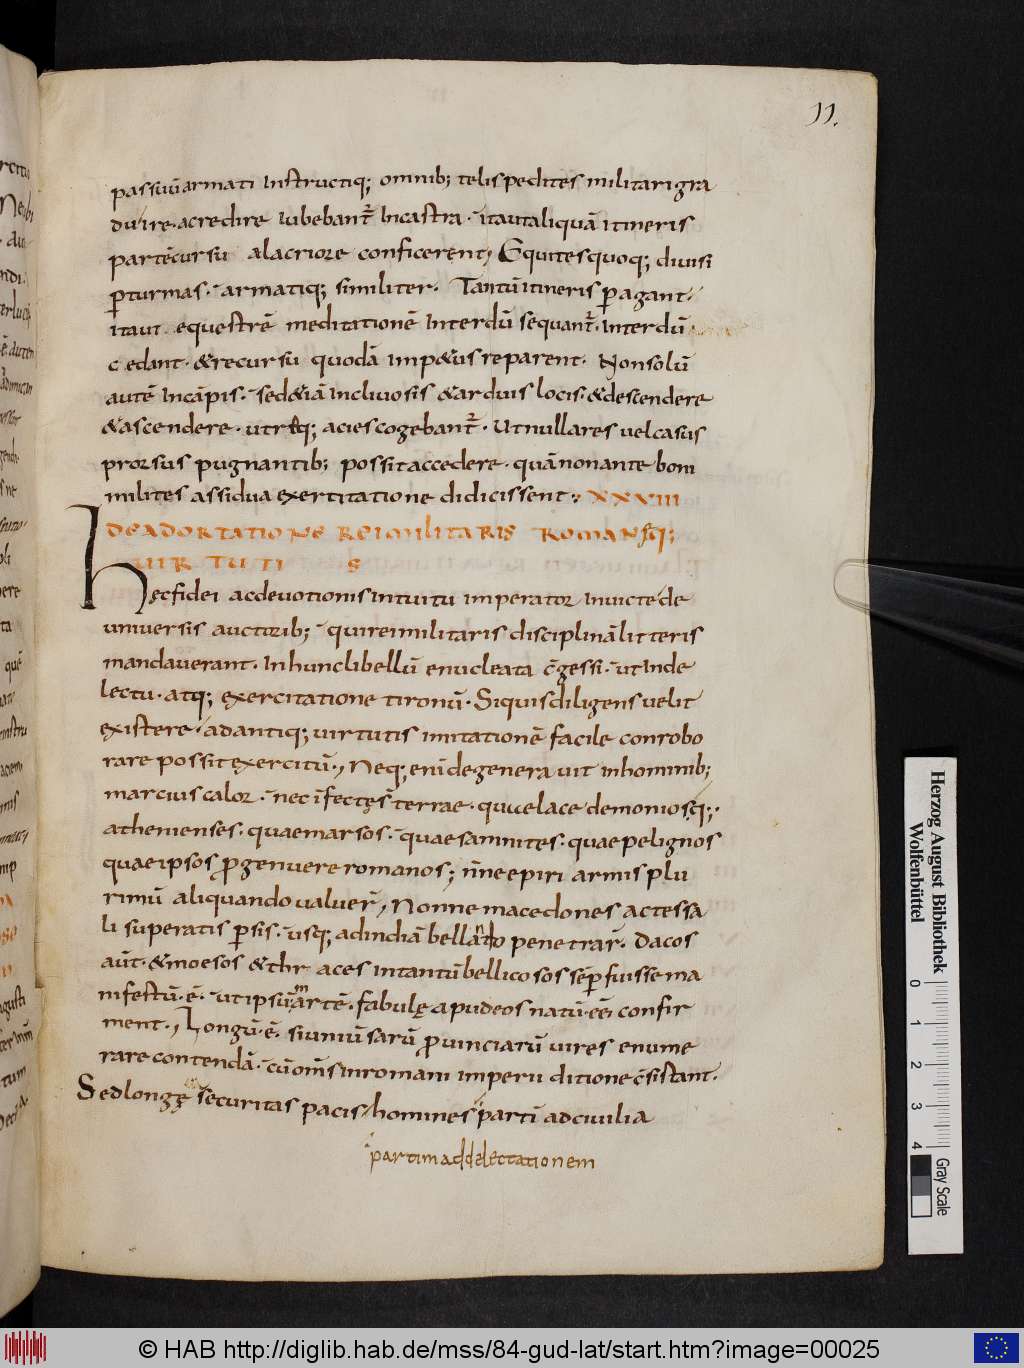 11.
passuū armati instructiq; omnib; telis pedites militari gra
du ire acredire iubebant̃ incastra · itaut aliquā itineris
partē cursu alacriore conficerent, Equites quoq; diuisi
p̲turmas · armatiq; similiter · Tantū itineris p̲agant ·
itaut equestrē meditationē interdū sequant̃ · interdū
cedant · & recursu quodā imp&us reparent · Nonsolū
autē incāpis · sed&iā incliuosis & arduis locis · & descendere
& ascendere · utrāq; acies cogebant̃ · Ut nulla res uel casus
prorsus pugnantib; possit accedere · quā non ante boni
milites assidua exertitatione didicissent · XXVIII
DE ADORTATIONE REI MILITARIS ROMANISQ;
UIRTUTIS
Hęc fidei ac deuotionis intuitu imperator inuicte de
uniuersis auctorib; qui rei militaris disciplinā litteris
mandauerant · In hunc libellū enucleata c̄gessi · ut inde
lectu · atq; exercitatione tironū · Siquis diligens uelit
existere · ad antiq; uirtutis imitationē facile conrobo
rare possit exercitū ·, Neq; enī degenerauit inhominib;
marcius calor · nec īfectęs terrae · que lacedemoniosq; ·
athenienses · quae marsos · quae samnites · quae pelignos
quae ipsos p̲genuere romanos; n̄ne epiri armis plu
rimū aliquando ualuer̄, Nonne macedones ac tessa
li superatis p̲sis · usq; ad indiā bellādo penetrar̄ · Dacos
aūt · & moesos & thr aces in tantū bellicosos sēp̲ fuisse ma
nifestū · ē · ut ipsū martē · fabulę apud eos natū · ēē · confir
ment ·, Longū · ē · si uniuūsarū p̲uinciarū uires enume
rare contendā · cū om̄s in romani imperii ditione c̄sistant ·
Sed longę securitas pacis homines parti ad ciuilia
partim ad delectationem
Herzog August Bibliothek
Wolfenbüttel
0 1 2 3 4
Gray Scale
© HAB http://diglib.hab.de/mss/84-gud-lat/start.htm?image=00025